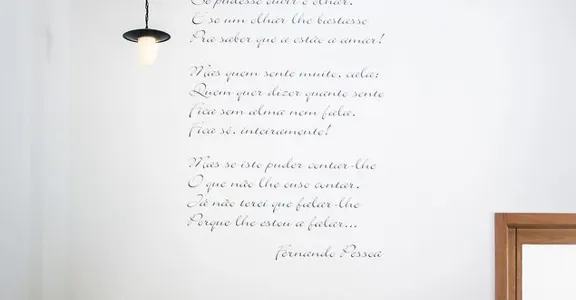 Se pudesse ouvir o olhar,
E se um olhar lhe bastasse
Pra saber que a estão a amar!
Mas quem sente muito, cala;
Quem quer dizer quanto sente
Fica sem alma nem fala,
Fica só, inteiramente!
Mas se isto puder contar-lhe
O que não lhe ouso contar,
Já não terei que falar-lhe
Porque lhe estou a falar...
Fernando Pessoa